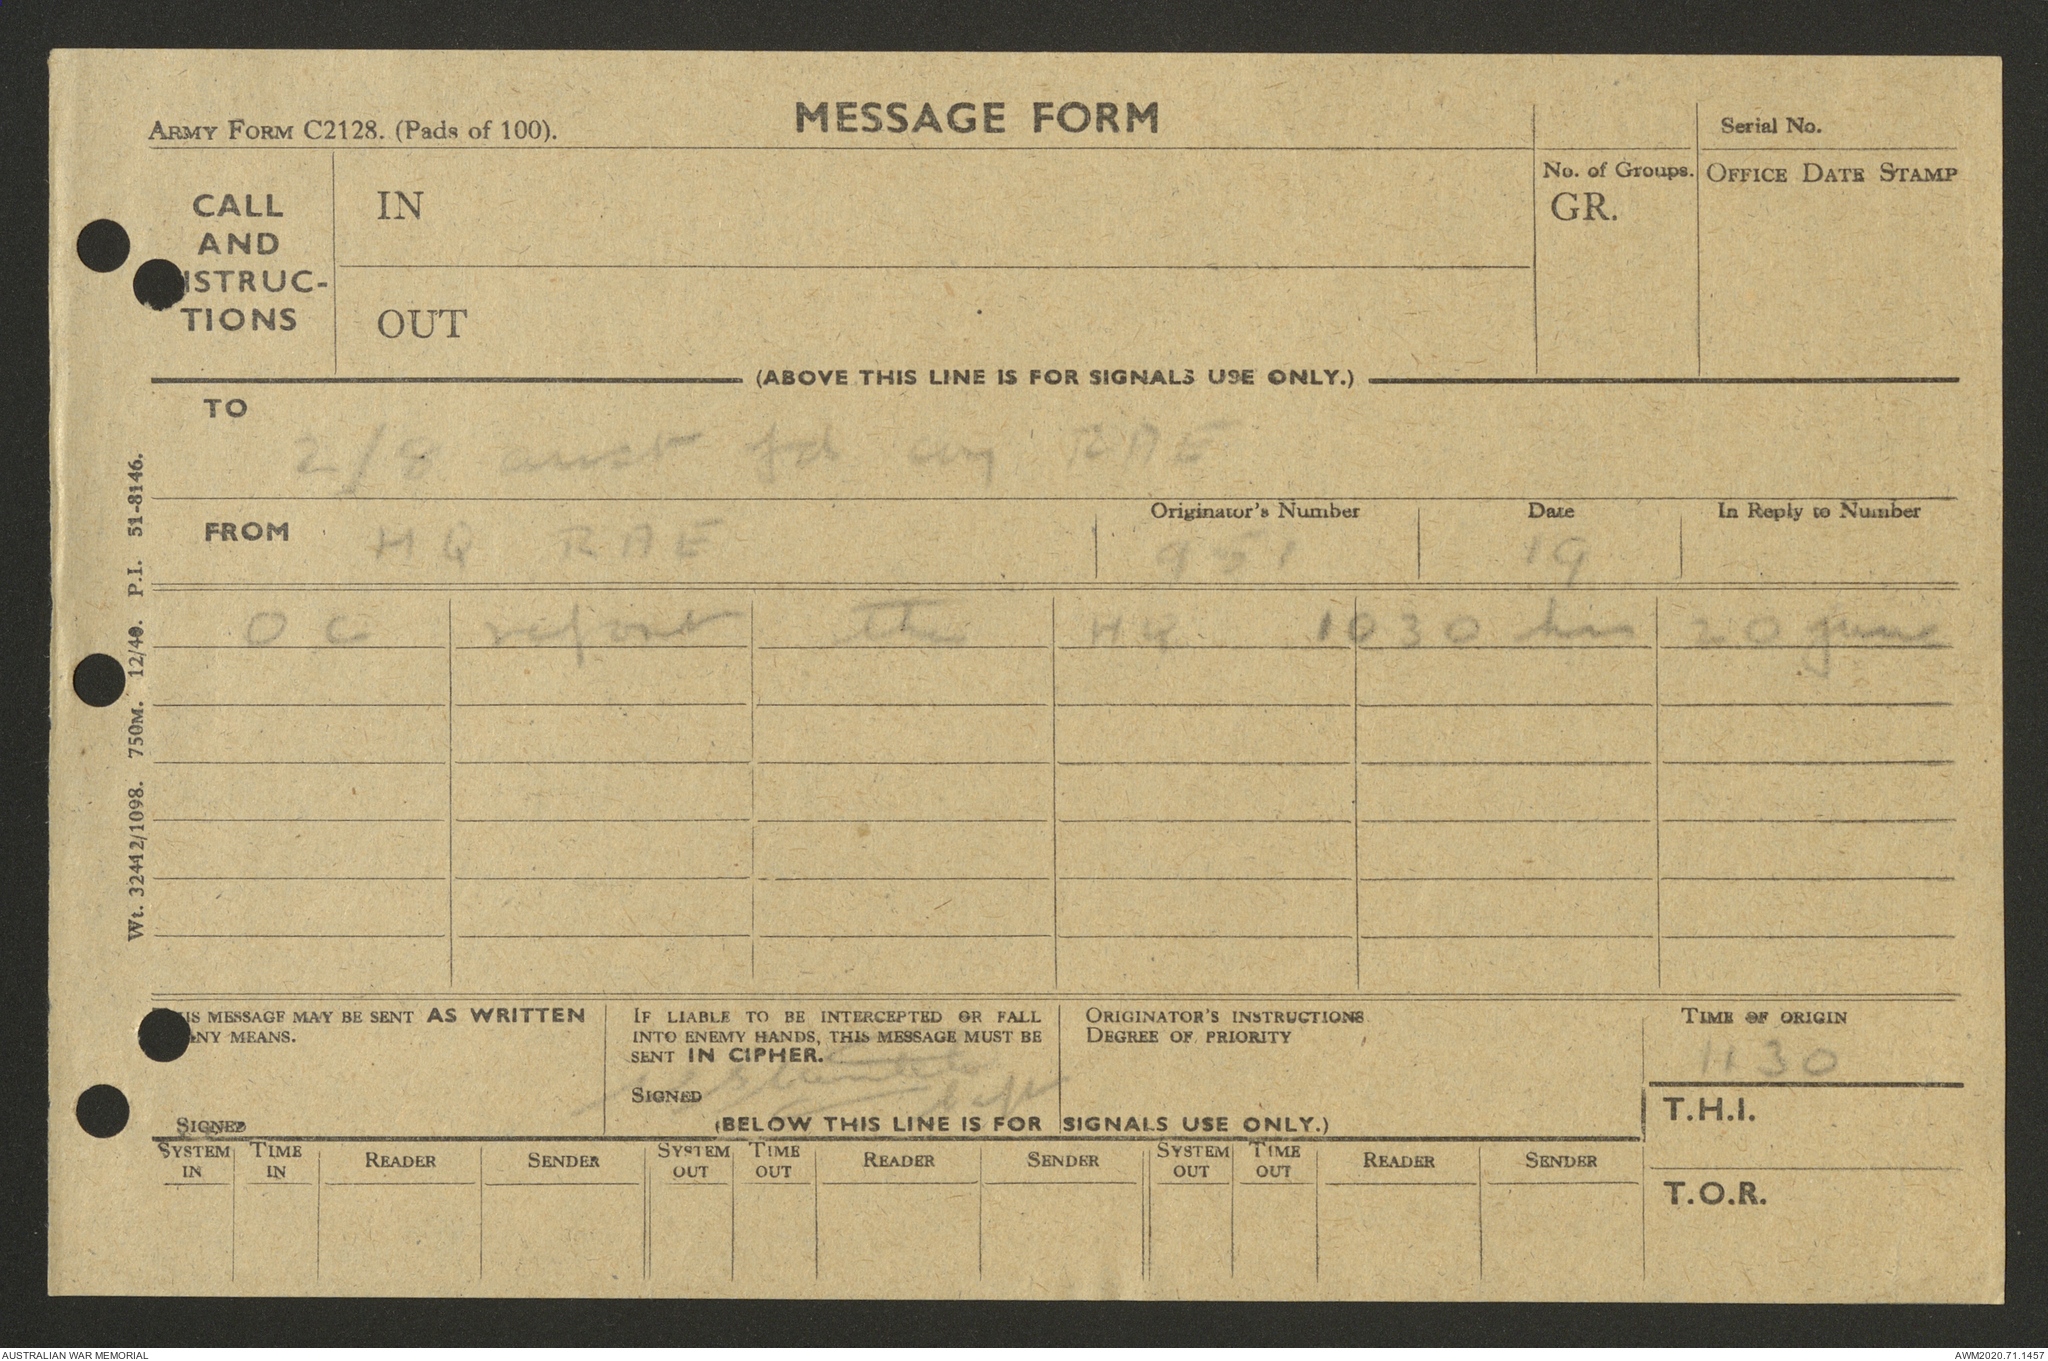 MESSAGE FORM
ARMY FORM C2128. (Pads of 100).
Serial No.
CALL
AND
ISTRUC-
TIONS
IN
OUT
No. of Groups.
GR.
OFFICE DATE STAMP
(ABOVE THIS LINE IS FOR SIGNALS USE ONLY.)
TO
2/8 aust fd coy RAE
FROM
HQ RAE
Originator's Number
951
Date
19
In Reply to Number
OC report this HQ 1030 hrs 20 June
Wt. 32442/1098. 750M. 12/40. P.I. 51-8146.
IS MESSAGE MAY BE SENT AS WRITTEN
ANY MEANS.
SIGNED
IF LIABLE TO BE INTERCEPTED OR FALL
INTO ENEMY HANDS, THIS MESSAGE MUST BE
SENT IN CIPHER.
SIGNED
Capt
ORIGINATOR'S INSTRUCTIONS
DEGREE OF PRIORITY
TIME OF ORIGIN
1130
T.H.I.
T.O.R.
(BELOW THIS LINE IS FOR SIGNALS USE ONLY.)
SYSTEM IN
TIME IN
READER
SENDER
SYSTEM OUT
TIME OUT
READER
SENDER
SYSTEM OUT
TIME OUT
READER
SENDER
AUSTRALIAN WAR MEMORIAL
AWM2020.71.1457